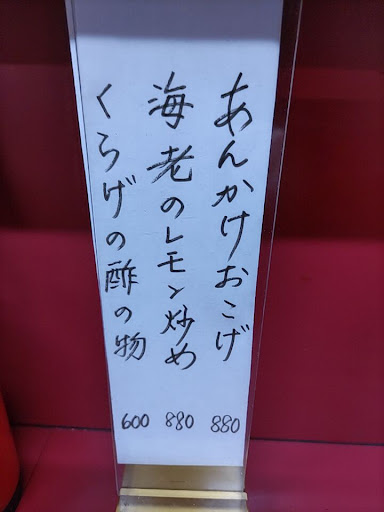 あんかけおこげ 880
海老のレモン炒め 880
くらげの酢の物 600